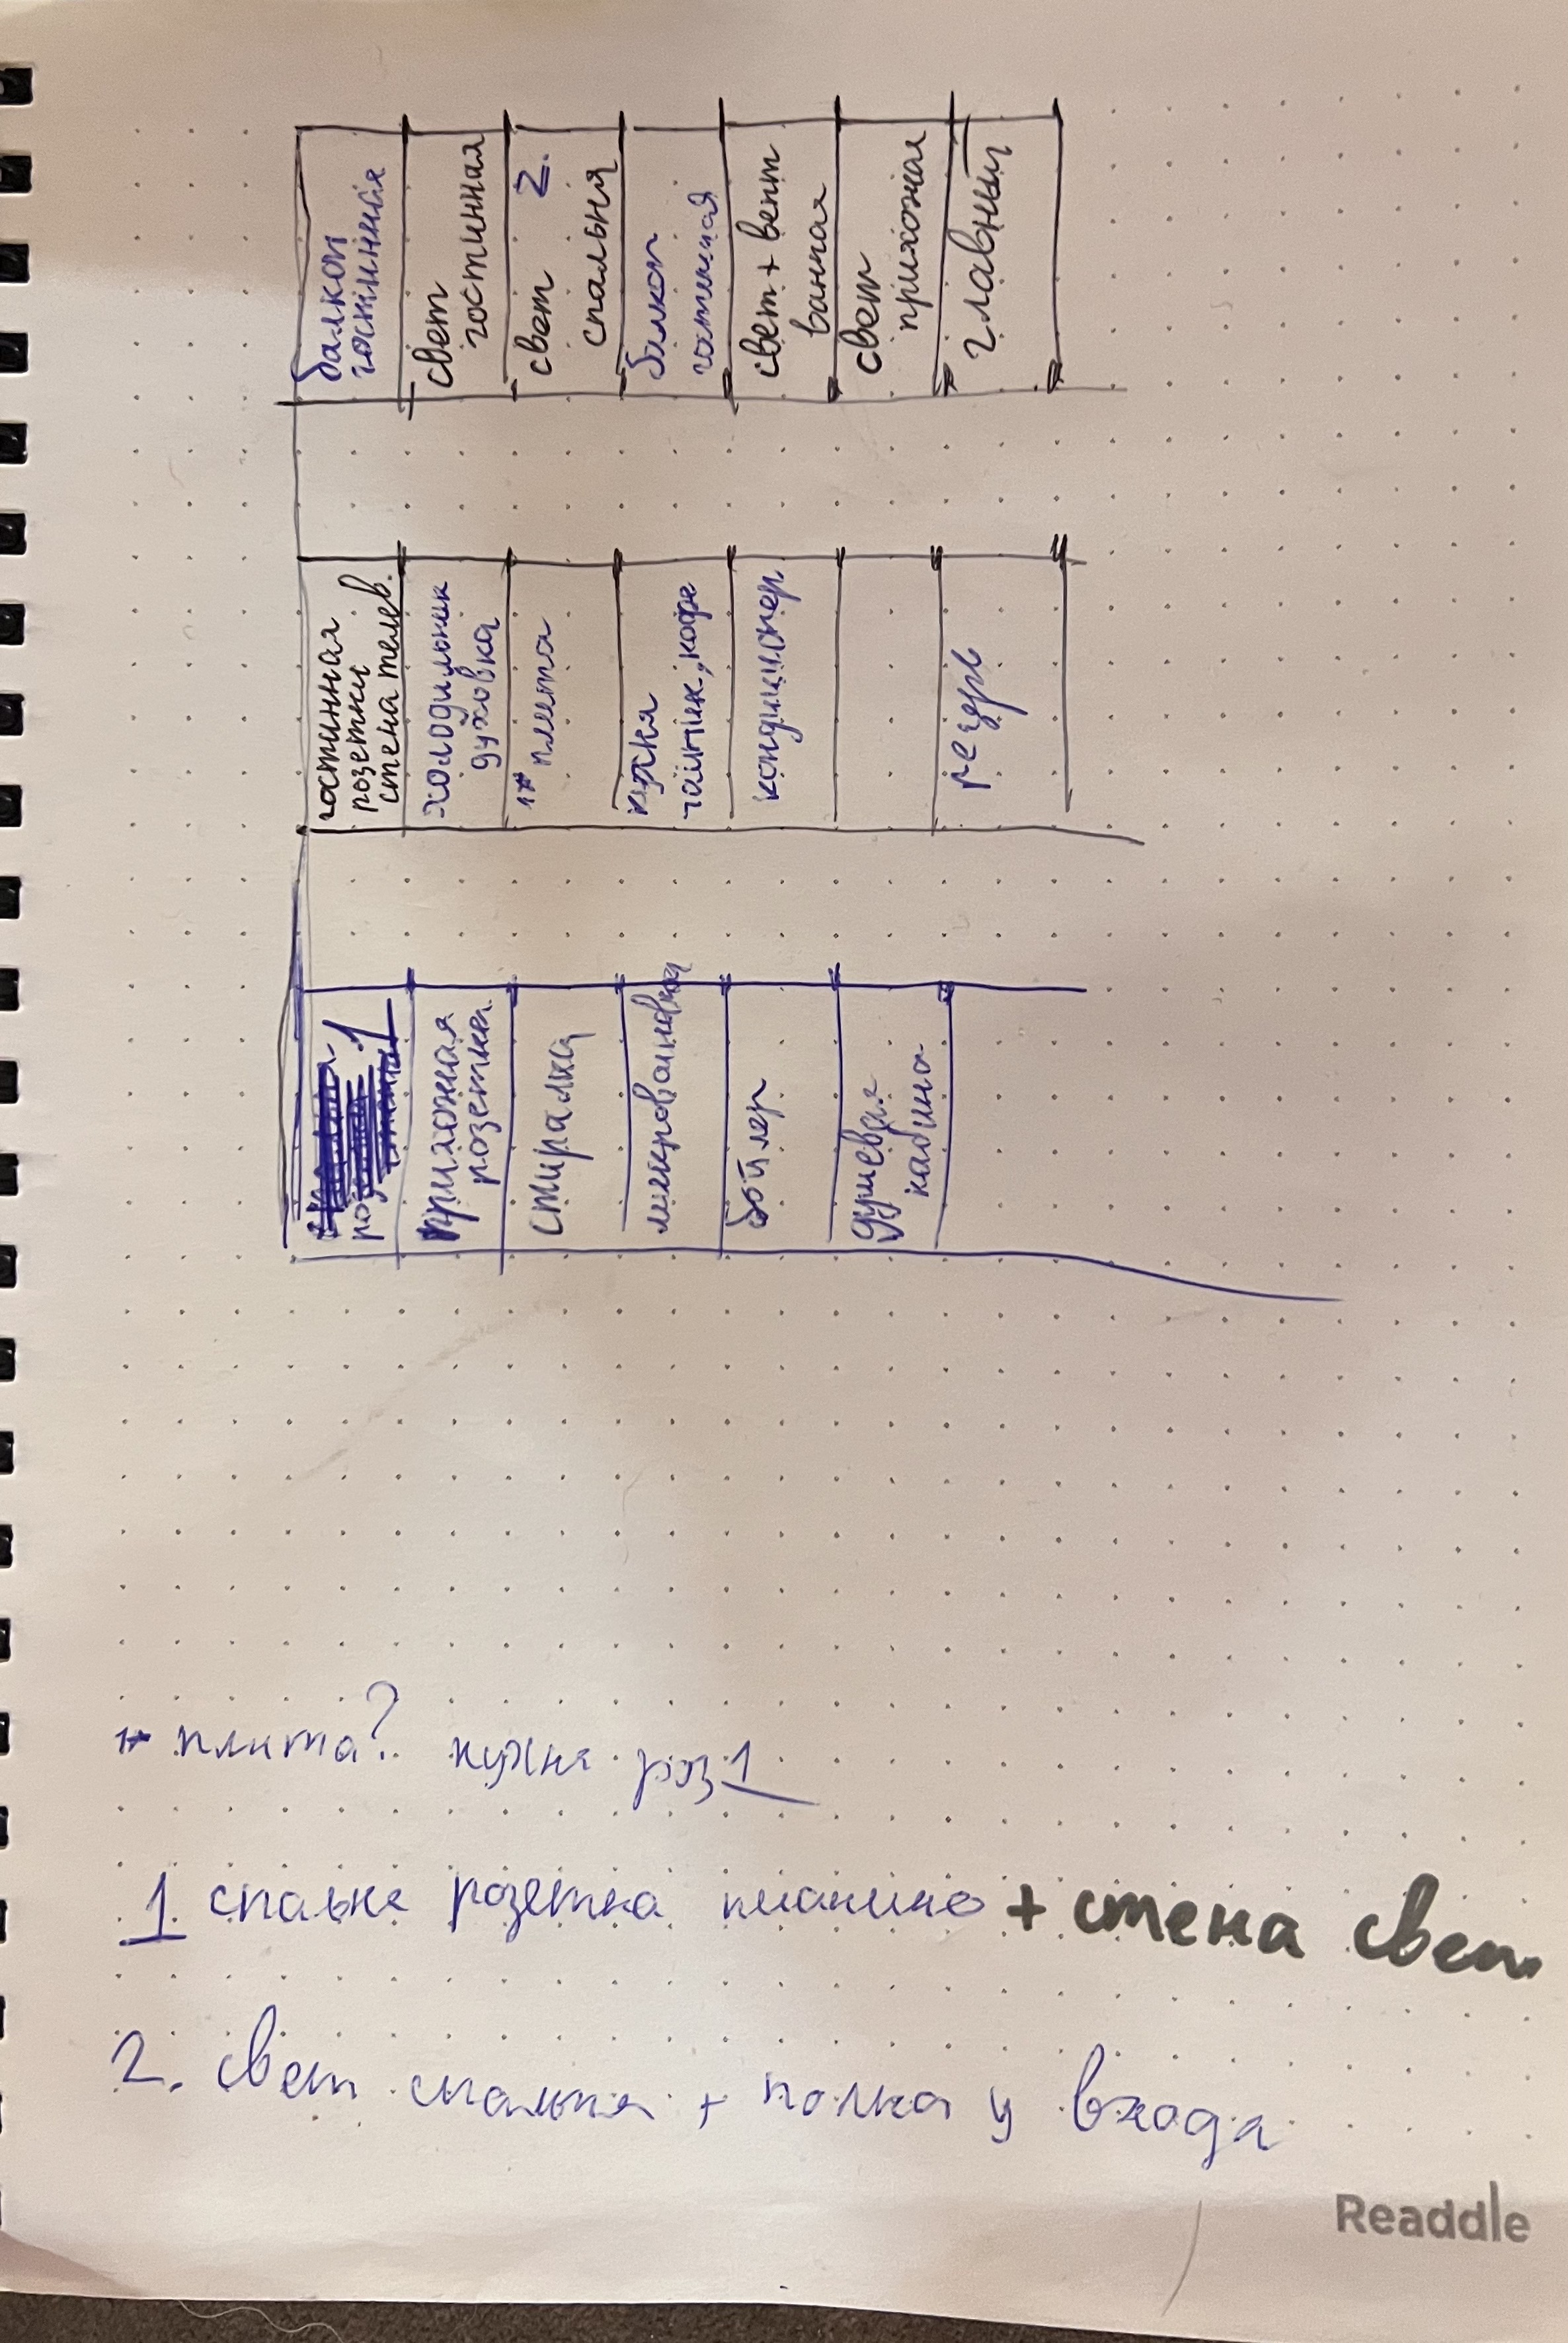 балкон
гостиная
свет
гостинная
свет 2.
спальня
балкон
гостиная
свет + вент
ванная
свет
прихожая
главный
гостинная
розетки
стена телев.
холодильник
духовка
1* плита
кухня
чайник, кофе
кондиционер
резерв
1
прихожая
розетки
стиралка
микроволновка
бойлер
душевая
кабина
1* плита? кухня роз 1
1 спальня розетка пианино + стена свет
2. свет спальня + полка у входа
Readdle